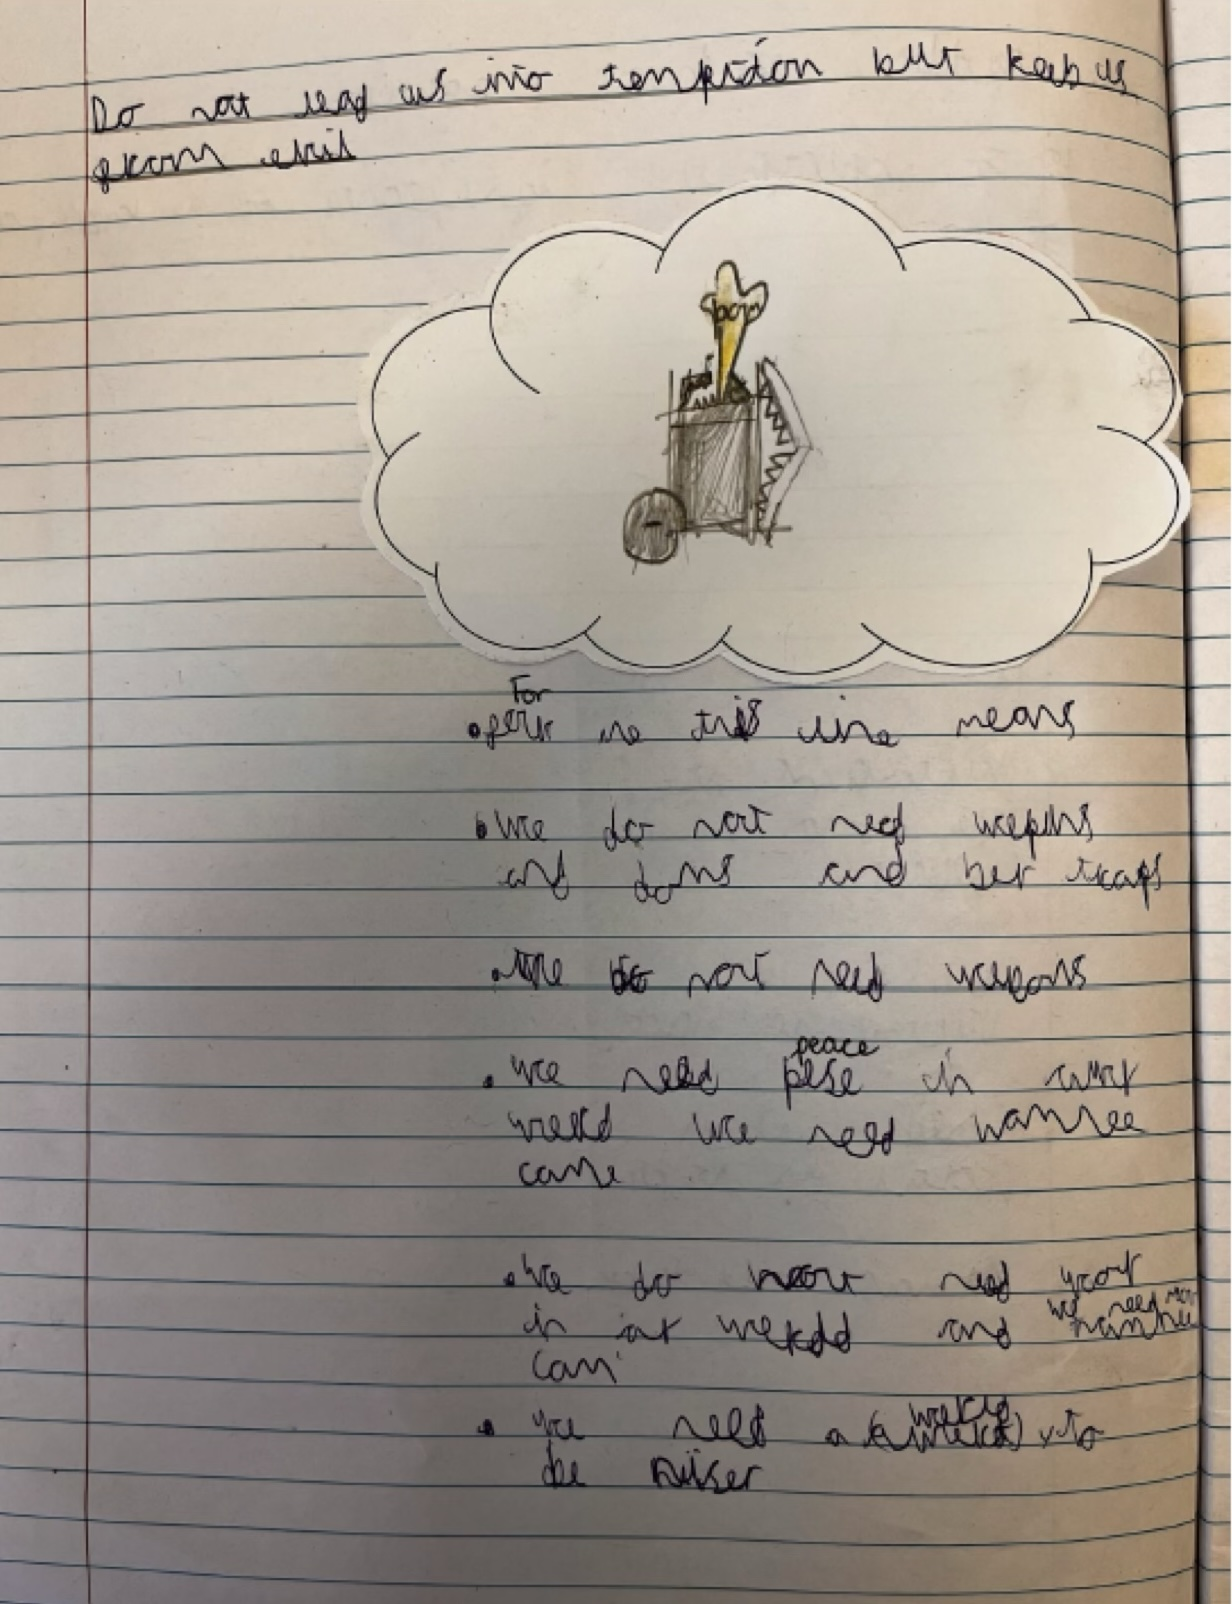 Do not lead us into temptdon but keep us
from evil
bom
For
me this line means
We do not need wepins
and boms and ber traps
We do not need wepons
peace
we need pese in
werld we need
came
We do not need
in werldd and
we need
cam
we need a werld to
be niser